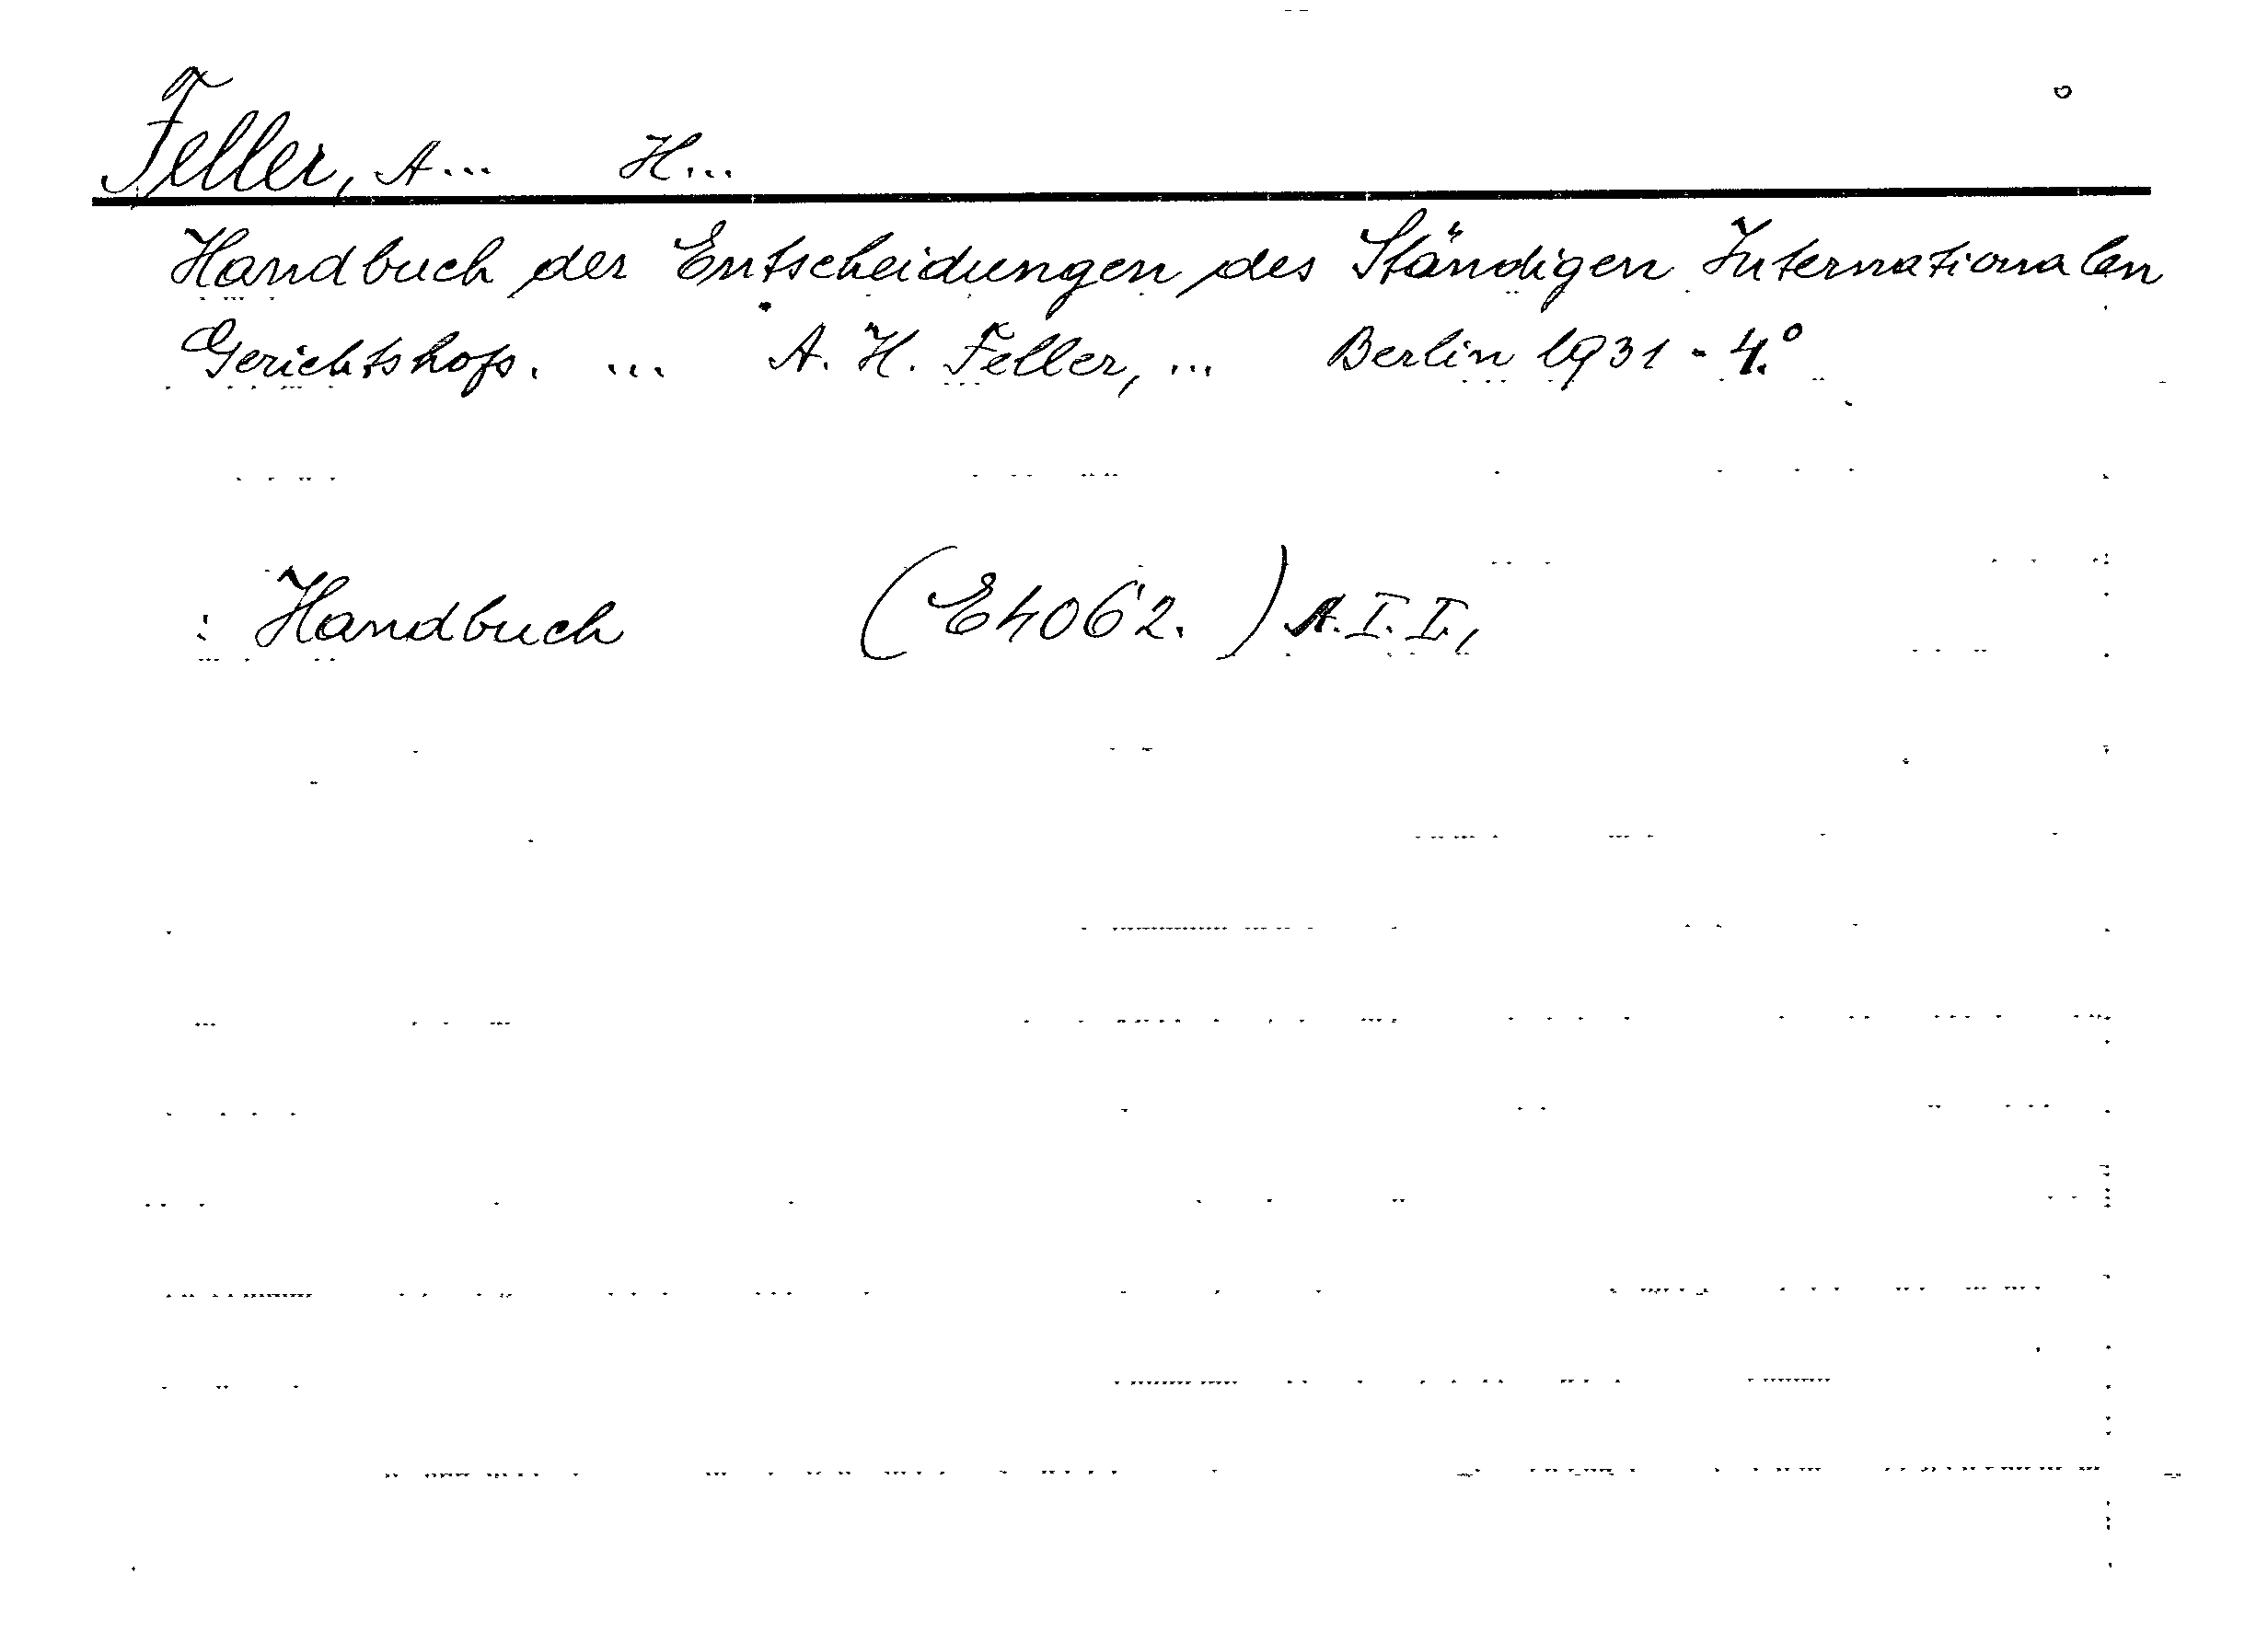 Feller, A... H...
Handbuch der Entscheidungen des Ständigen Internationalen
Gerichtshofs. ... A. H. Feller, ... Berlin 1931 - 4.°
: Handbuch (E4062.) A.I.I,